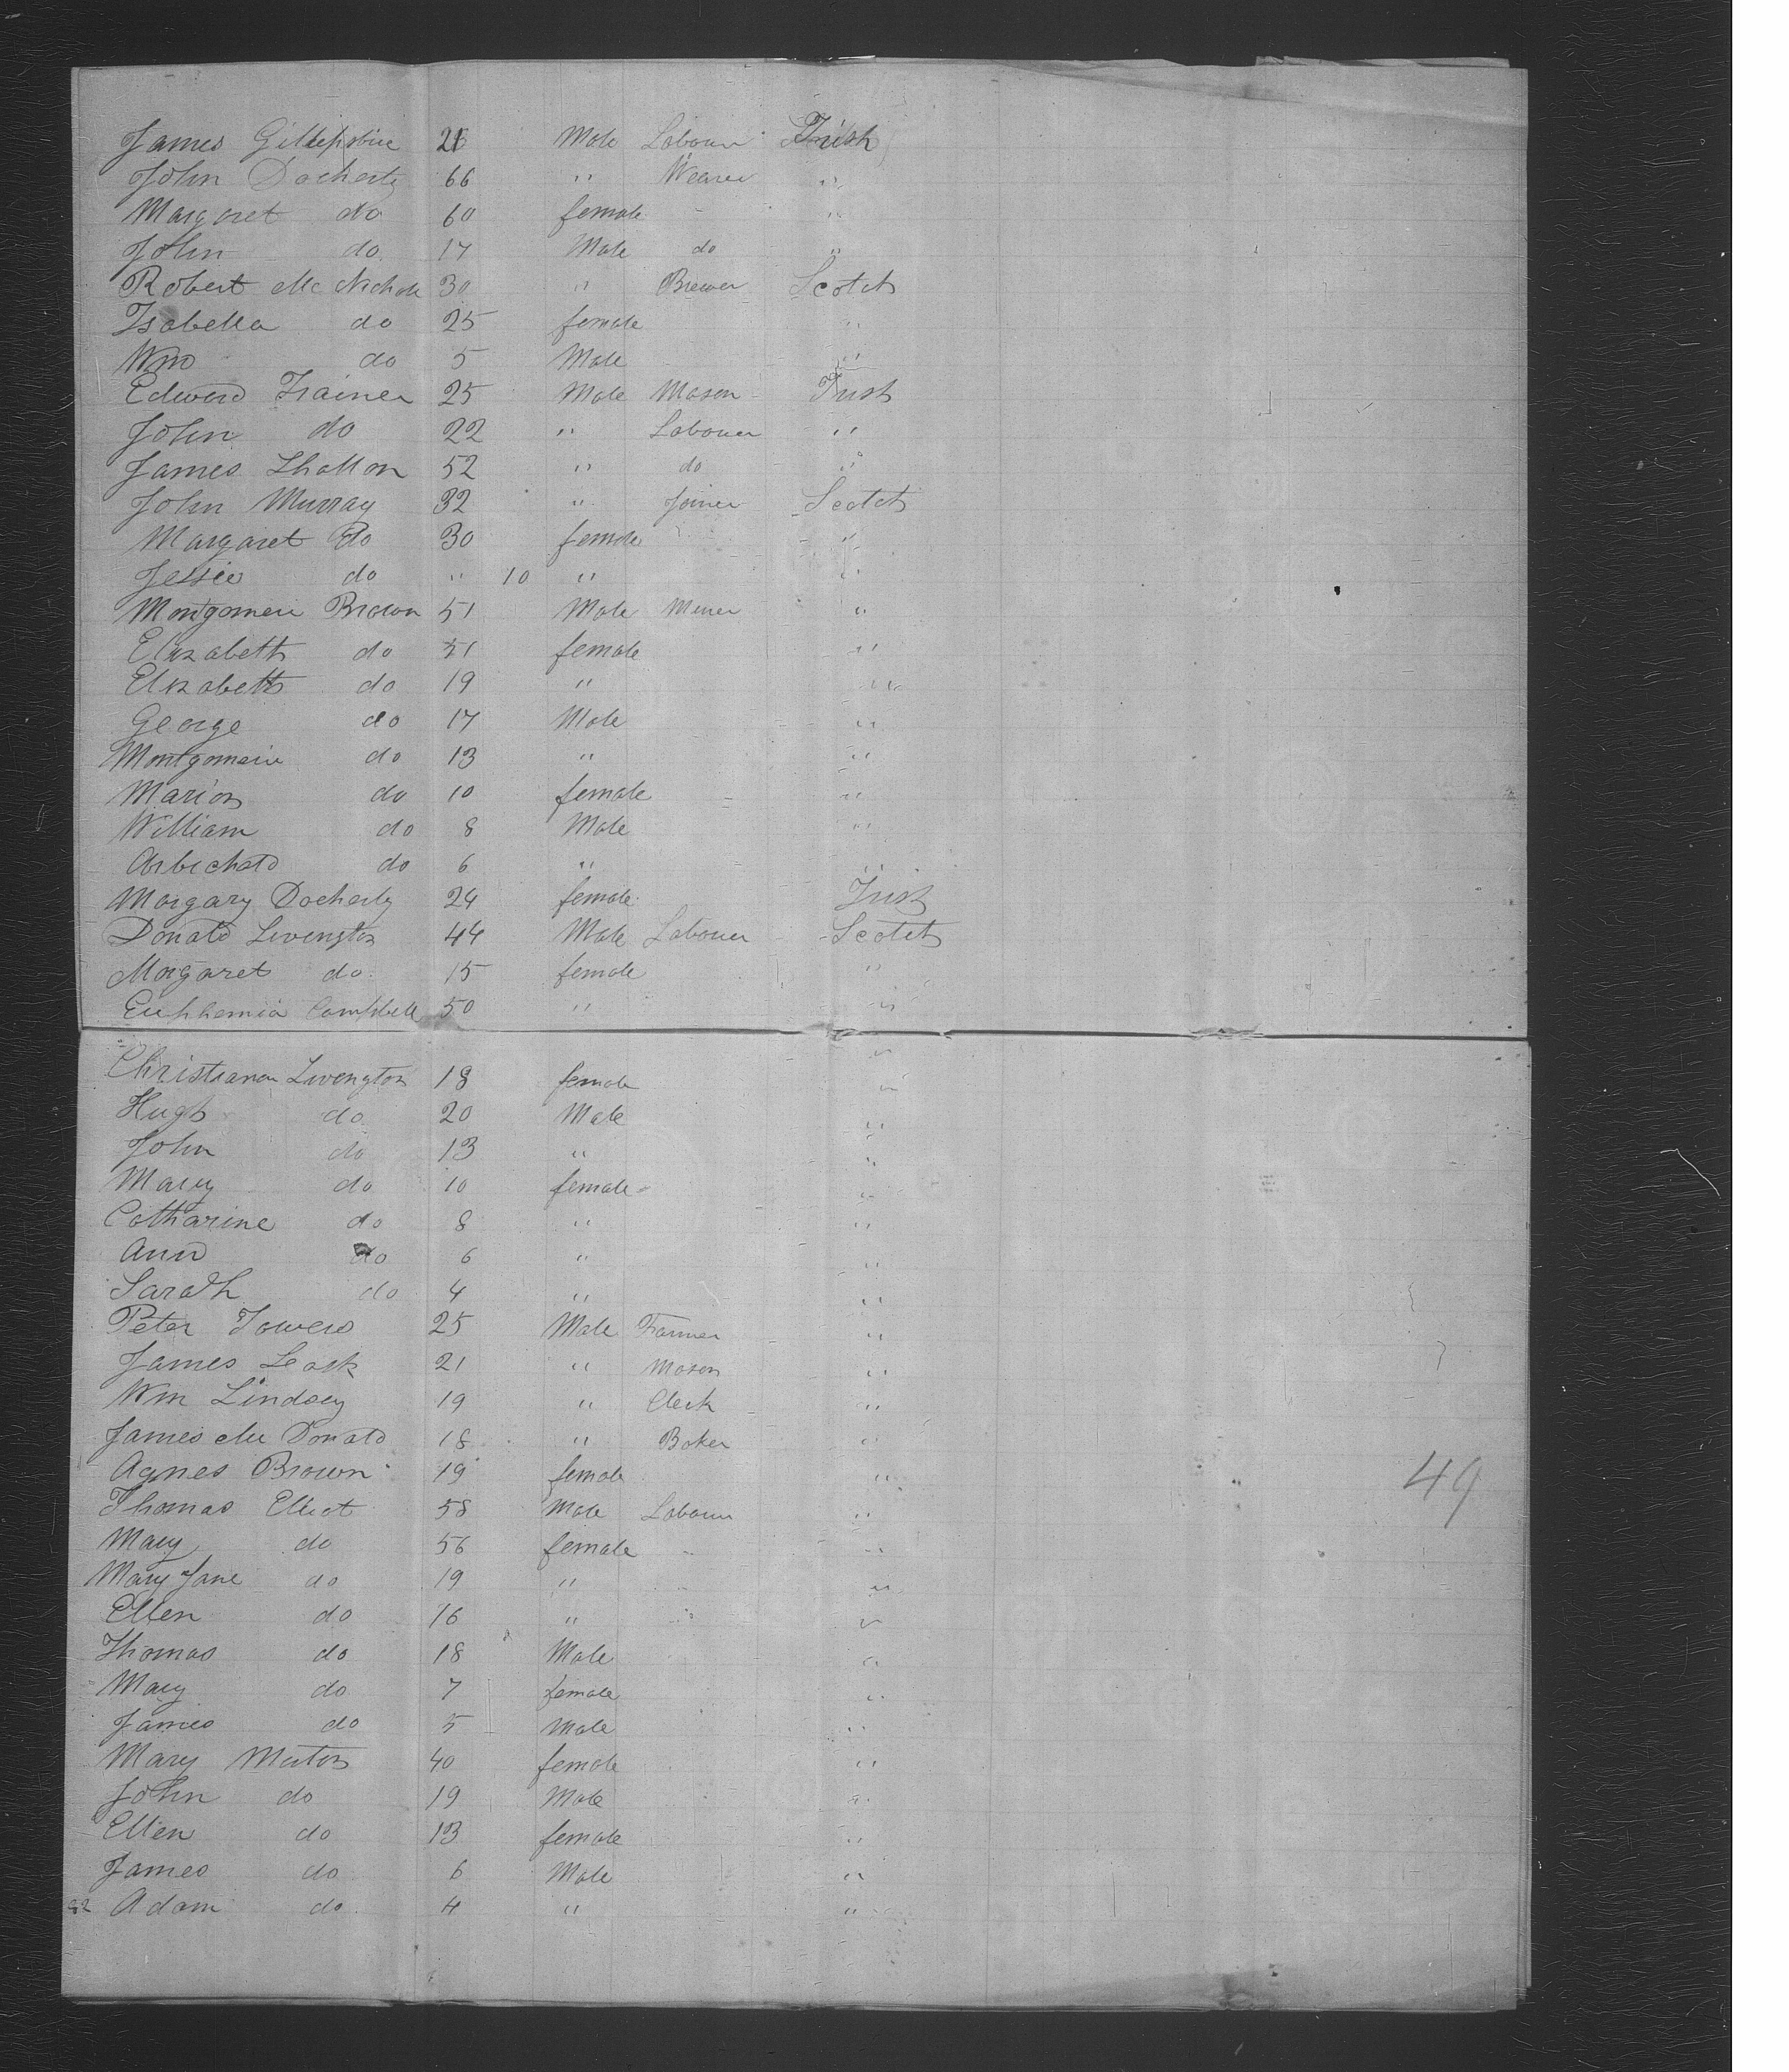 James Gillespie 26 Male Labour Irish
John Docherty 66 " Weaver "
Margaret do 60 female "
John do 17 Male do "
Robert Mc Nichole 30 " Brewer Scotch
Isabella do 25 female "
Wm do 5 Male "
Edward Trainer 25 Male Mason Irish
John do 22 " Labouer "
James 52 " do "
John Murray 32 " Joiner Scotch
Margaret do 30 female "
Jessie do " 10 " "
Montgomerie Brown 51 Male Miner "
Elizabeth do female "
Elizabeth do 19 " "
George do 17 Male "
Montgomerie do 13 " "
Marion do 10 female "
William do 8 Male "
Arbichald do 6 " "
Margary Docherty 24 female Irish
Donald Livengston 44 Male Labouer Scotch
Margaret do 15 female "
Euphemia Campbell 50 " "
Christiana Livengston 18 female "
Hugh do 20 Male "
John do 13 " "
Mary do 10 female "
Catharine do 8 " "
Ann do 6 " "
Sarah do 4 " "
Peter Towers 25 Male Farmer "
James Leask 21 " Mason "
Wm Lindsey 19 " Clerk "
James Mc Donald 18 " Baker "
Agnes Brown 19 female "
49
Thomas Elliot 58 Male Labour "
Mary do 56 female "
Mary Jane do 19 " "
Ellen do 16 " "
Thomas do 18 Male "
Mary do 7 female "
James do 5 Male "
Mary 40 female "
John do 19 Male "
Ellen do 13 female "
James do 6 Male "
Adam do 4 " "